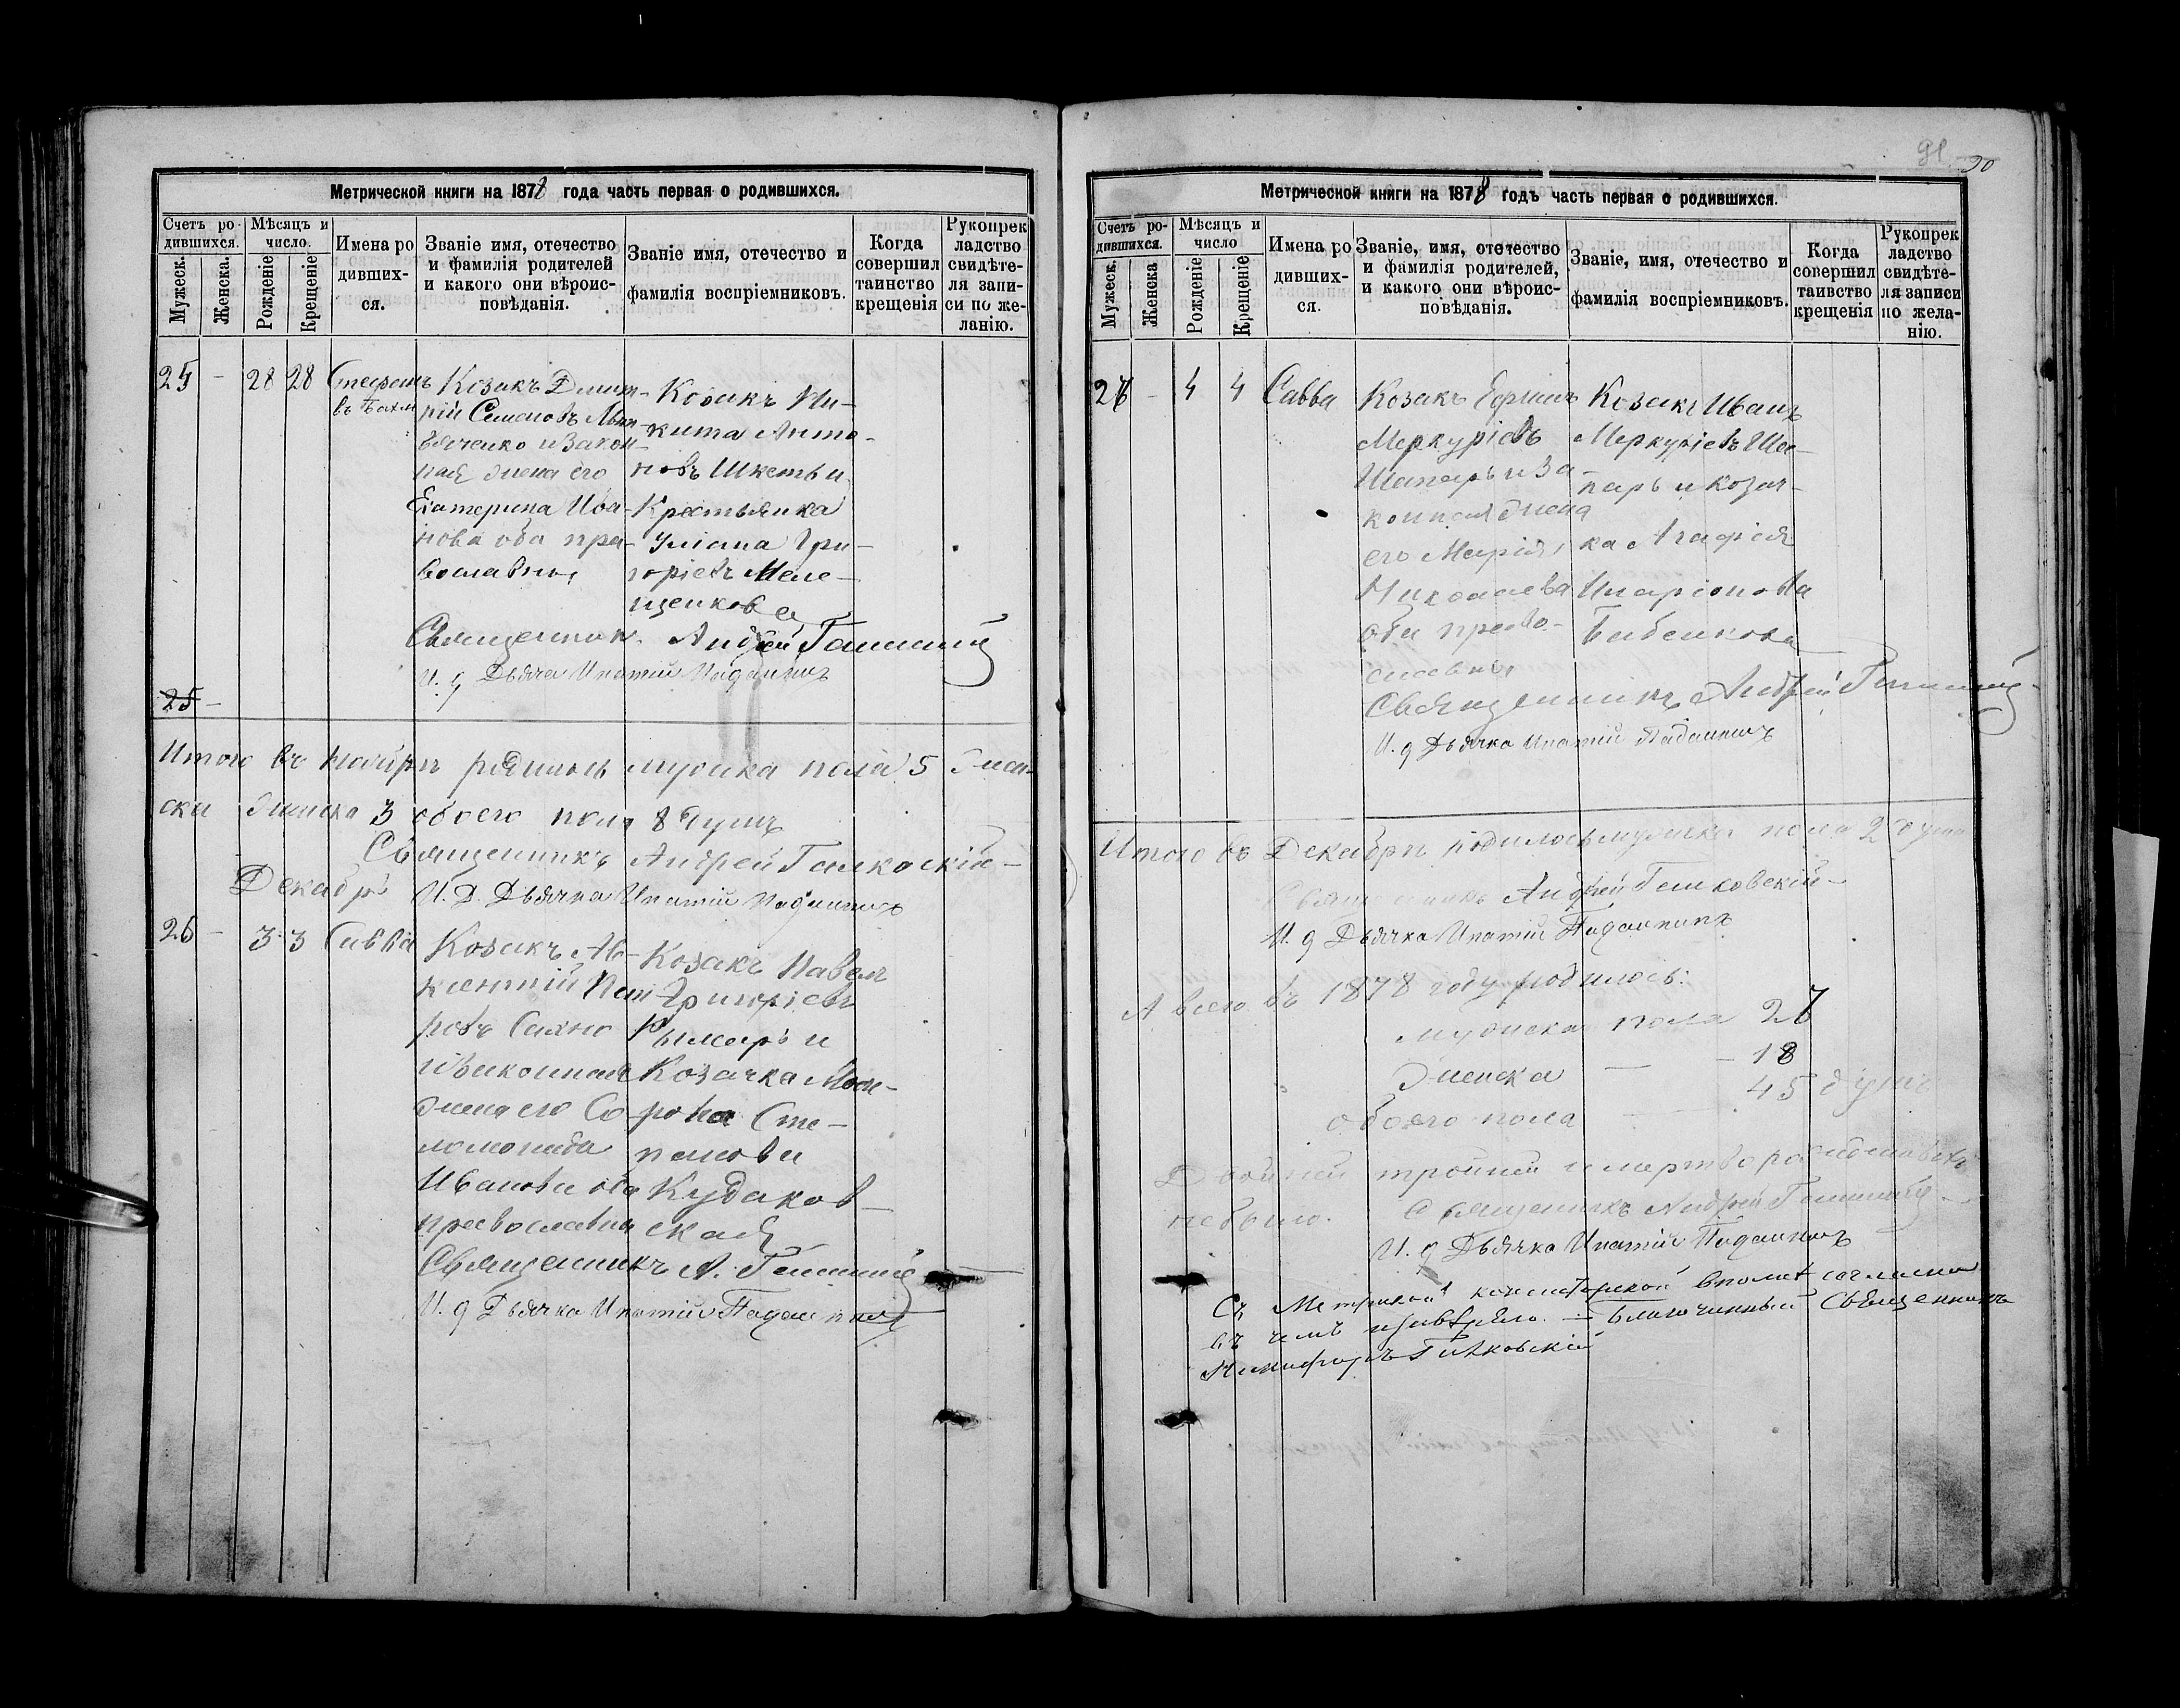 91 90
Метрической книги на 1878 года часть первая о родившихся.
Счетъ ро-
дившихся.
Мужеск.
Женска.
Мѣсяцъ и
число.
Рожденіе
Крещеніе
Имена ро
дивших-
ся.
Званіе имя, отечество
и фамилія родителей
и какого они вѣроис-
повѣданія.
Званіе имя, отечество и
фамилія воспріемниковъ.
Когда
совершил
таинство
крещенія
Рукопрек
ладство
свидѣте-
ля запи-
си по же-
ланію.
25 - 28 28 Стефанъ
Козакъ Дмит-
рій Семеновъ
и закон-
ная жена его
Екатерина Ива-
нова оба пра-
вославны
Козакъ Ни-
кита Анто-
новъ Шкеть и
Крестьянка
Уліана Гри-
горіевъ Меле-
щенкова
Священник Андрей
И. д Дьячка Ипатій
25 -
Итого въ ноябрѣ родилось мужска пола 5 жен-
ска 3 обоего пола 8 душъ
Священникъ Андрей Галковскій
И. Д. Дьячка Ипатій
Декабрь
26 - 3 3 Савва
Козакъ Ав-
ксентій Пет-
ровъ Сахно
и законная
жена его Со-
ломонида
Иванова оба
православны
Козакъ Павелъ
Григоріевъ
Рымарь и
Козачка Мат-
рона Сте-
панова
Кудаков-
ская
Священникъ А.
И. д Дьячка Ипатій
Метрической книги на 1878 годъ часть первая о родившихся.
Счетъ ро-
дившихся.
Мужеск.
Женска
Мѣсяцъ и
число
Рожденіе
Крещеніе
Имена ро
дивших-
ся.
Званіе, имя, отечество
и фамилія родителей,
и какого они вѣроис-
повѣданія.
Званіе, имя, отечество и
фамилія воспріемниковъ.
Когда
совершил
таинство
крещенія
Рукопрек
ладство
свидѣте-
ля записи
по жела-
нію.
27 - 4 4 Савва
Козакъ Ефимъ
Меркуріевъ
Шапарь и за-
конная жена
его Марія
Николаева
оба право-
славны
Козакъ Иванъ
Меркуріевъ Ша-
парь и козач-
ка Агафія
Иларіонова
Бабенкова
Священникъ Андрей
И. д Дьячка Ипатій
Итого въ Декабрѣ родилось мужска пола 2 души
Священникъ Андрей Галковскій
И. д Дьячка Ипатій
А всего въ 1878 году родилось:
мужска пола 27
женска — 18
обоего пола — 45 душъ
Двойней тройней и мертворожденныхъ
не было. Священникъ Андрей
И. д Дьячка Ипатій
Съ Метрикой консисторской вполнѣ согласна
въ чемъ и Благочинный Священникъ
Никифоръ Галковскій